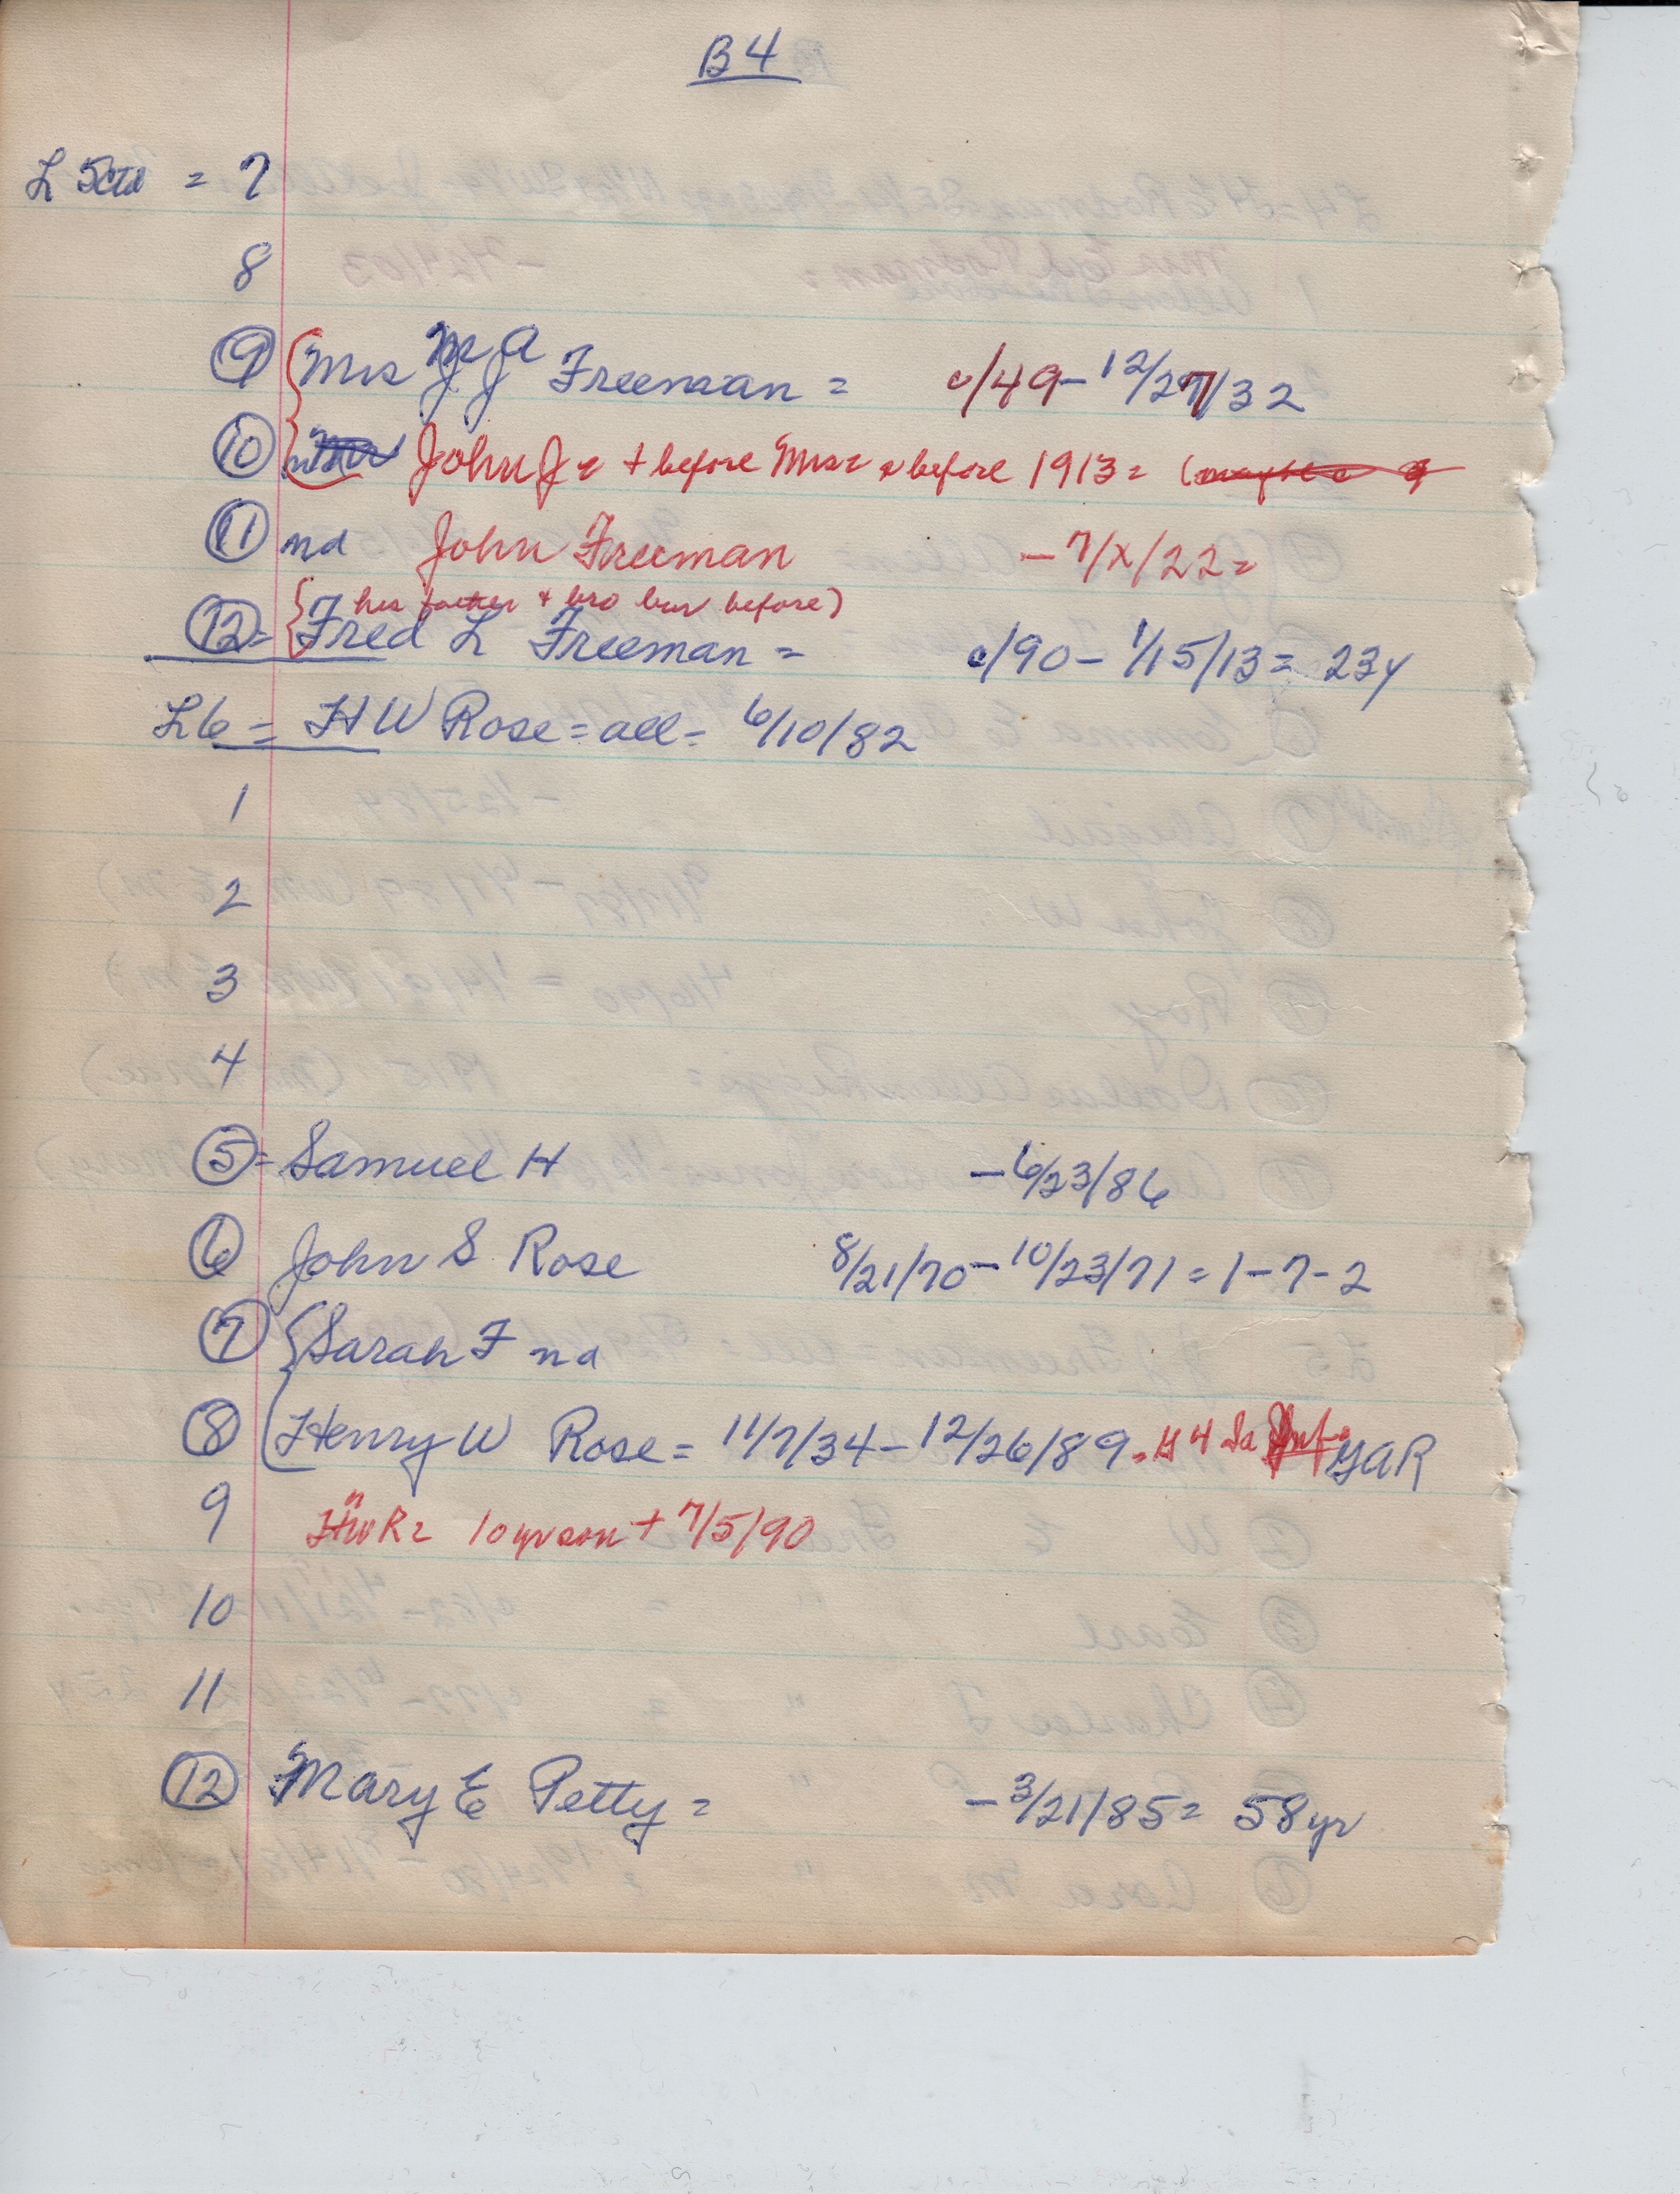 B4
L 5ctd = 7
8
9 Mrs M A Freeman = c/49 - 12/27/32
10 John Jr + before Mrs = & before 1913 =
11 nd John Freeman - 7/x/22 =
(his father + bro bur before)
12 = Fred L Freeman = c/90 - 1/15/13 = 23y
L6 = HW Rose = all = 6/10/82
1
2
3
4
5 = Samuel H - 6/23/86
6 John S Rose 8/21/70 - 10/23/71 = 1-7-2
7 Sarah F nd
8 Henry W Rose = 11/7/34 - 12/26/89 = H 4 Ia Inf GAR
9 HWR = 10 yr son + 7/5/90
10
11
12 Mary E Petty = - 3/21/85 = 58yr